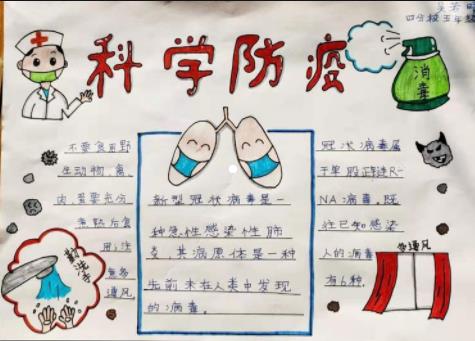 四分校五年级
科学防疫
消毒
不要食用野
生动物，禽、
肉蛋要充分
煮熟后食
用，注
意多
通风.
新型冠状病毒是一
种急性感染性肺
炎，其病原体是一种
先前未在人类中发现
的病毒。
冠状病毒属
于单股正链R-
NA病毒，既
往已知感染
人的病毒
有6种.
勤洗手
常通风